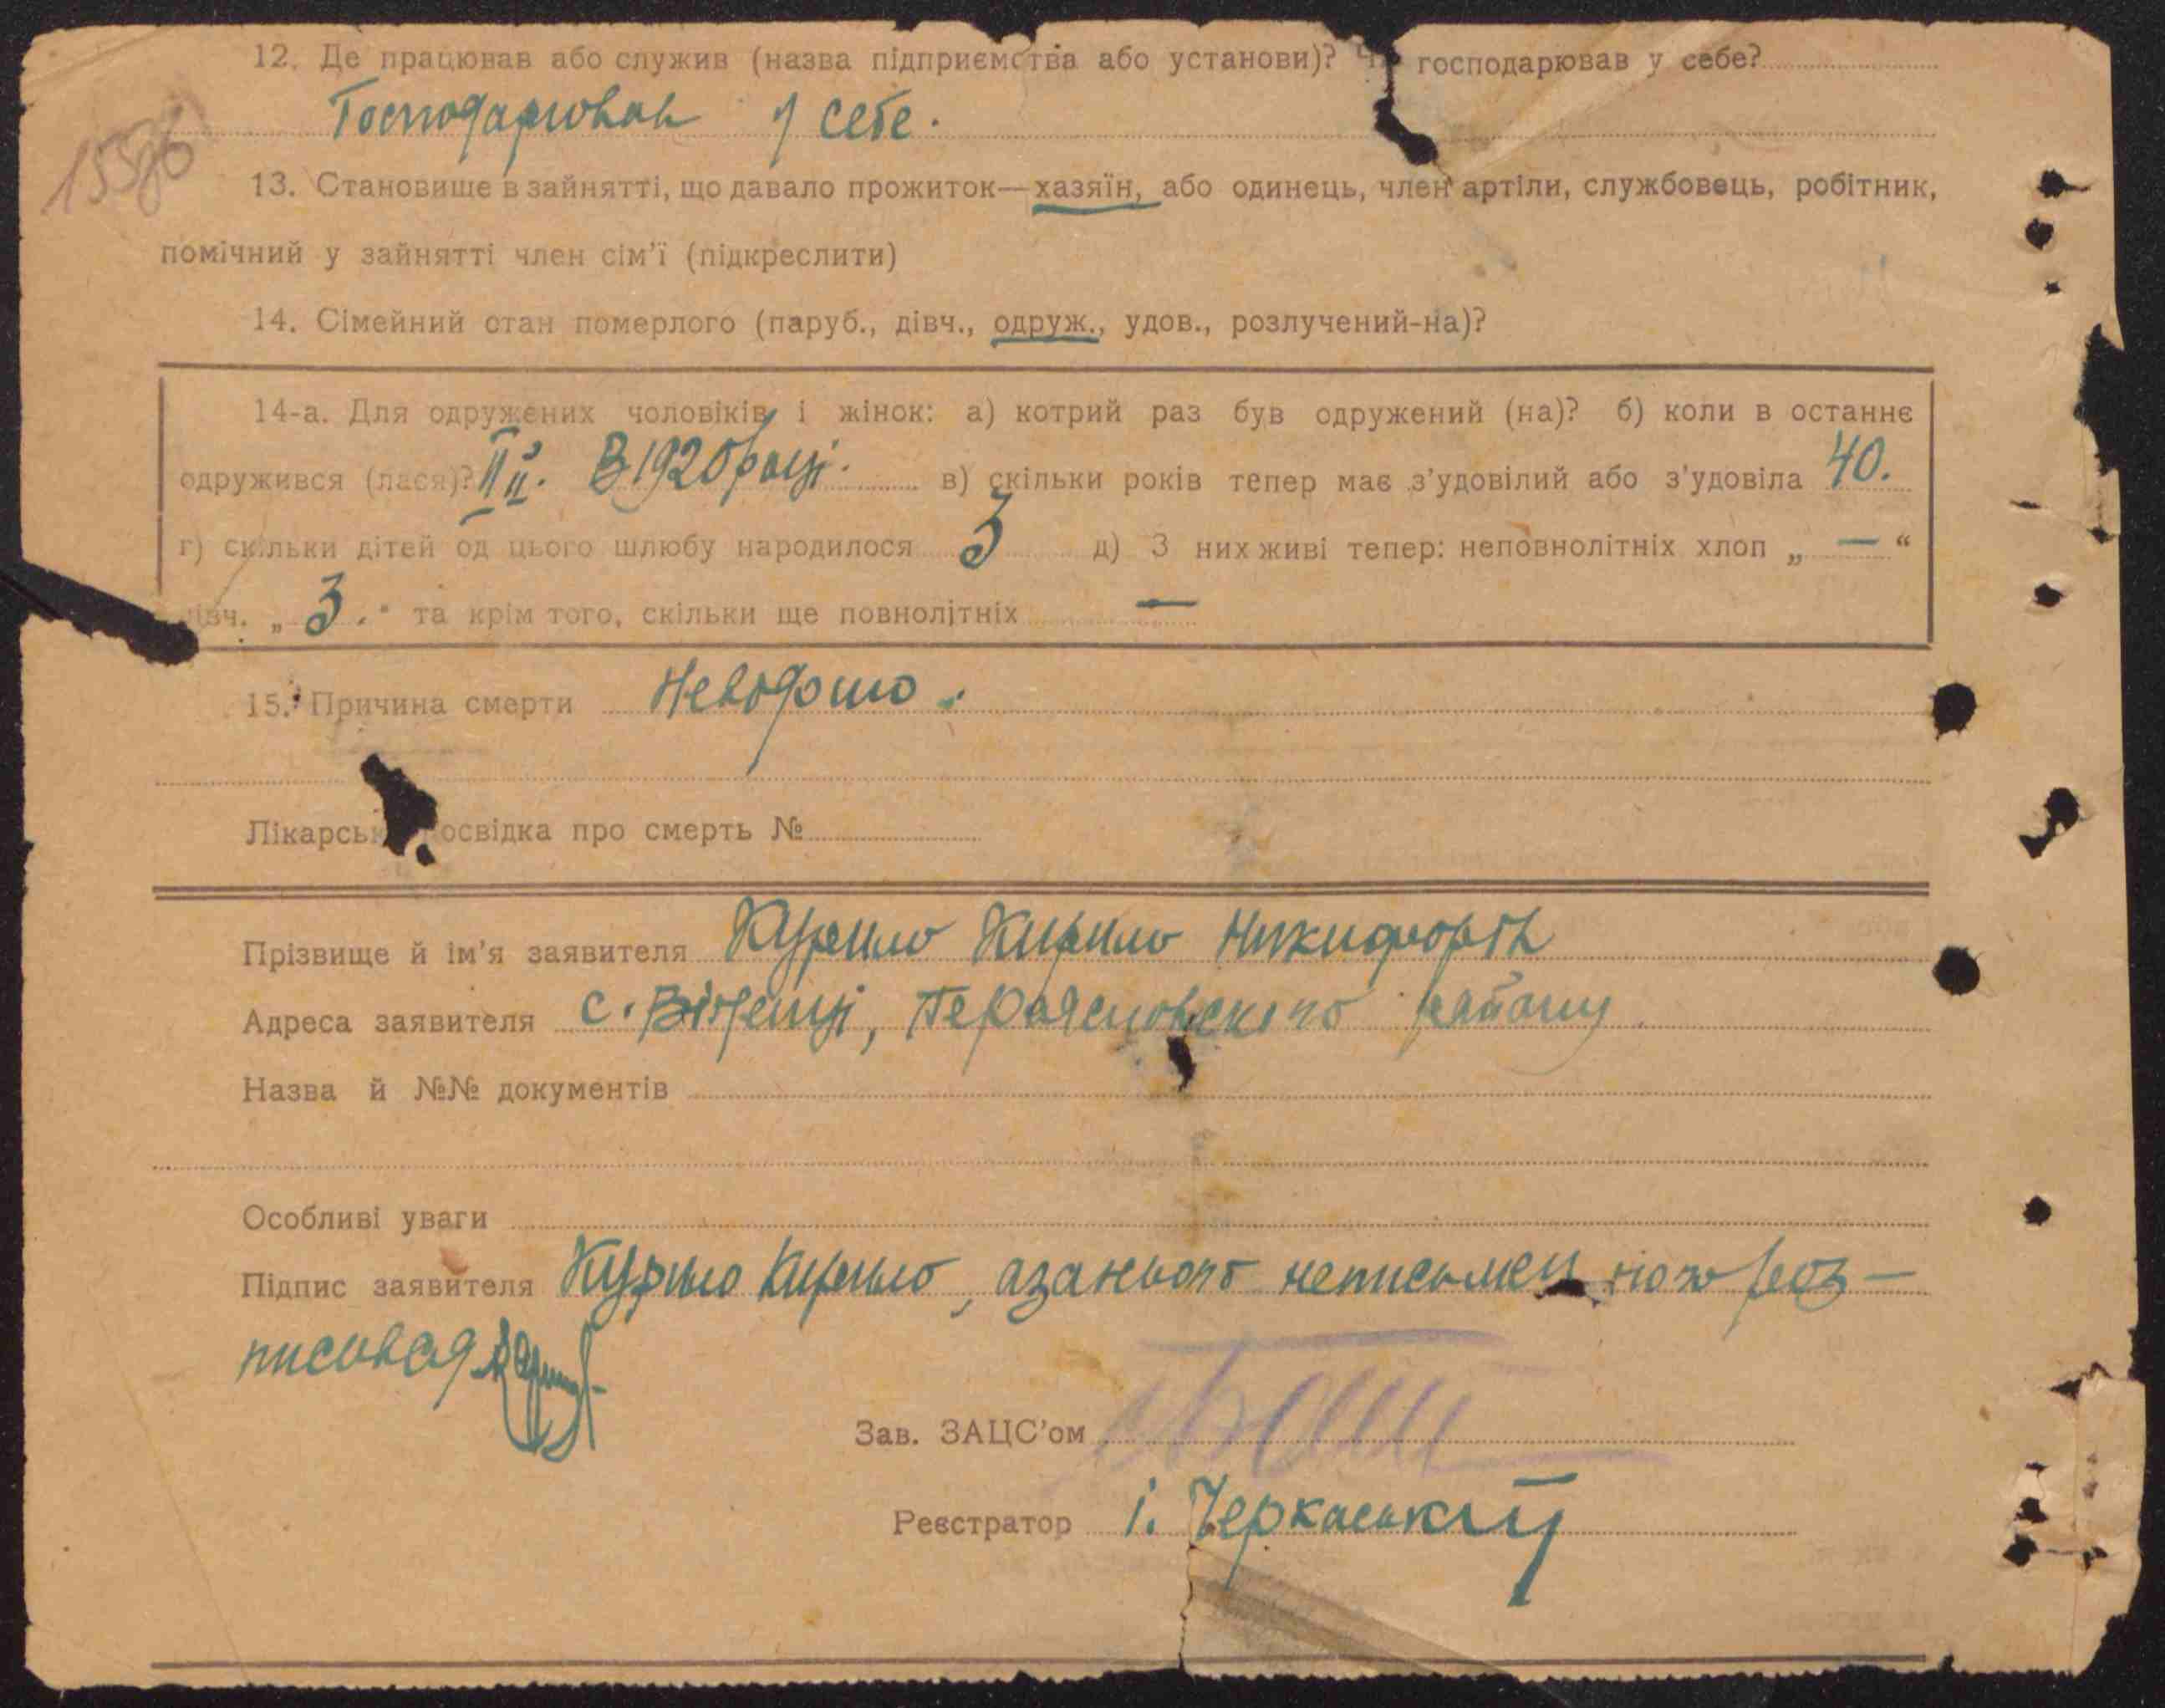 12. Де працював або служив (назва підприємства або установи)? господарював у себе?
Господарював у себе.
13. Становище в зайнятті, що давало прожиток—хазяїн, або одинець, член артіли, службовець, робітник,
помічний у зайнятті член сім'ї (підкреслити)
14. Сімейний стан померлого (паруб., дівч., одруж., удов., розлучений-на)?
14-а. Для одружених чоловіків і жінок: а) котрий раз був одружений (на)? б) коли в останнє
одружився (лася)? ІІй. В 1920 році. в) скільки років тепер має з'удовілий або з'удовіла 40.
г) скільки дітей од цього шлюбу народилося 3 д) З них живі тепер: неповнолітніх хлоп „ — “
дівч. „ 3. “ та крім того, скільки ще повнолітніх —
15. Причина смерти Невідомо.
Лікарська посвідка про смерть №
Прізвище й ім'я заявителя Курило Кирило Никифорів
Адреса заявителя с. району
Назва й №№ документів
Особливі уваги
Підпис заявителя Курило Кирило, а за нього неписьменного роз—
писався
Зав. ЗАЦС'ом
Реєстратор І. Черкаський